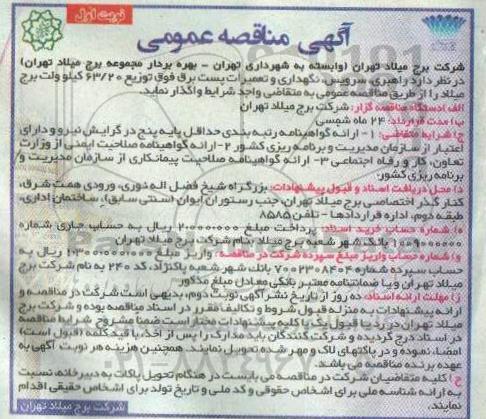 نوبت اول
آگهی مناقصه عمومی
شرکت برج میلاد تهران (وابسته به شهرداری تهران - بهره بردار مجموعه برج میلاد تهران)
در نظر دارد راهبری، سرویس، نگهداری و تعمیرات پست برق فوق توزیع ۶۳/۲۰ کیلو ولت برج
میلاد را از طریق مناقصه عمومی به متقاضی واجد شرایط واگذار نماید.
الف) دستگاه مناقصه گزار: شرکت برج میلاد تهران
ب) مدت قرارداد: ۲۴ ماه شمسی
ج) شرایط متقاضی: ۱- ارائه گواهینامه رتبه بندی حداقل پایه پنج در گرایش نیرو و دارای
اعتبار از سازمان مدیریت و برنامه ریزی کشور ۲- ارائه گواهینامه صلاحیت ایمنی از وزارت
تعاون، کار و رفاه اجتماعی ۳- ارائه گواهینامه صلاحیت پیمانکاری از سازمان مدیریت و
برنامه ریزی کشور.
د) محل دریافت اسناد و قبول پیشنهادات: بزرگراه شیخ فضل اله نوری، ورودی همت شرق،
کنار گذر اختصاصی برج میلاد تهران، جنب رستوران ایوان (سنتی سابق)، ساختمان اداری،
طبقه دوم، اداره قراردادها - تلفن ۸۵۸۵
ه) شماره حساب خرید اسناد: پرداخت مبلغ ۲۰۰۰۰۰۰ ریال به حساب جاری شماره
بانک شهر شعبه برج میلاد بنام شرکت برج میلاد تهران
و) شماره حساب واریز مبلغ سپرده شرکت در مناقصه: واریز مبلغ ریال به
حساب سپرده شماره ۷۰۰۲۳۰۸۴۰۴ بانک شهر شعبه پاکنژاد، کد ۲۴۰ به نام شرکت برج
میلاد تهران و یا ضمانتنامه معتبر بانکی معادل مبلغ مذکور
ز) مهلت ارائه اسناد: ده روز از تاریخ نشر آگهی نوبت دوم، بدیهی است شرکت در مناقصه و
ارائه پیشنهادات به منزله قبول شروط و تکالیف مقرر در اسناد مناقصه بوده و شرکت برج
میلاد تهران در رد یا قبول یک یا کلیه پیشنهادات مختار است ضمنا مشروح شرایط مناقصه
در اسناد درج گردیده و شرکت کنندگان باید مدارک را پس از اخذ، با قید کلمه (قبول است)
امضا، نموده و در پاکتهای لاک و مهر شده تحویل نمایند. همچنین هزینه هر نوبت آگهی به
عهده برنده مناقصه می باشد.
ح) کلیه متقاضیان شرکت در مناقصه می بایست در هنگام تحویل پاکات به دبیرخانه نسبت
به ارائه شناسه ملی برای اشخاص حقوقی و کد ملی و تاریخ تولد برای اشخاص حقیقی اقدام
نمایند.
شرکت برج میلاد تهران